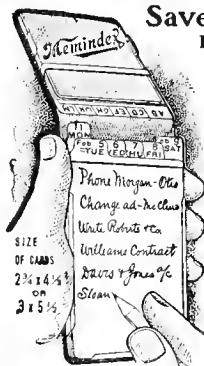 Save
Reminder
AB CD EF GH IJK LM
11
MON Feb 5 TUE 6 WED 7 THU 8 FRI 9 SAT
Phone Morgan-Otis
Change ad-McClure
Write Roberts & Co
Williams Contract
Davis & Jones a/c
Sloan
SIZE
OF CARDS
2¾ x 4½
OR
3 x 5½